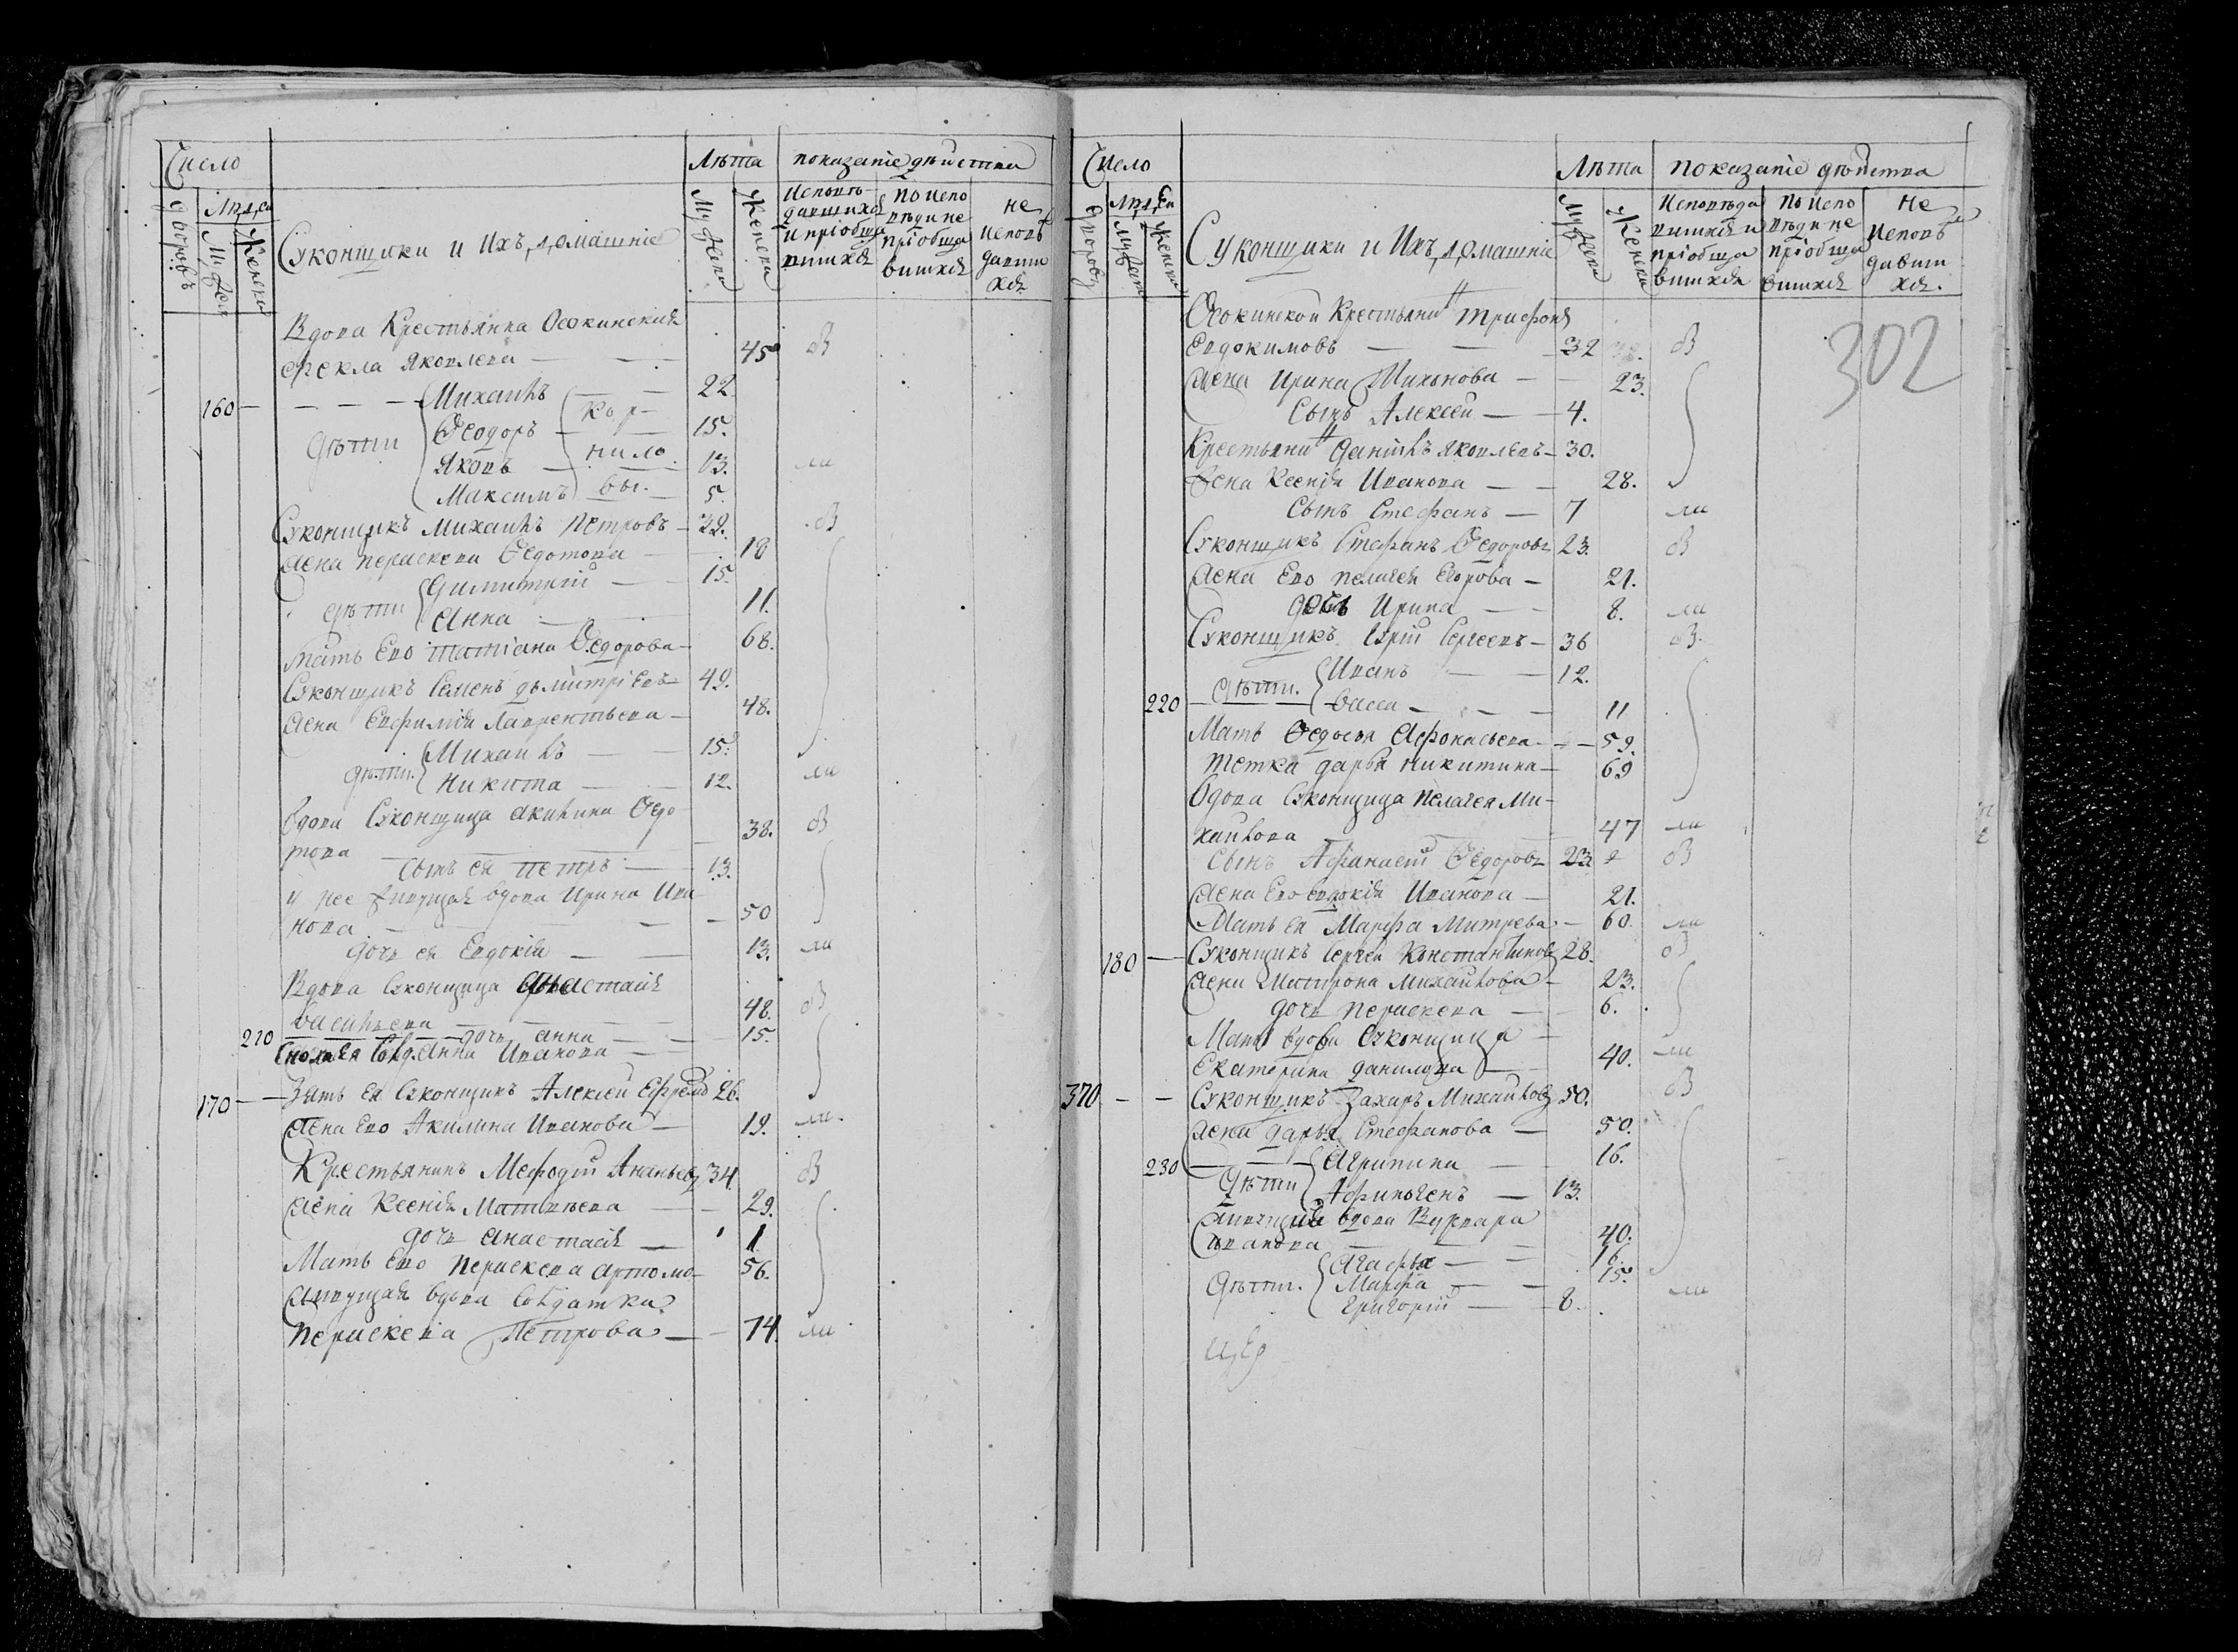 Число
Лѣта показаніе дѣйства
дворовъ
Людей
Мужеска
Женска
Суконщики и ихъ домашніе
Мужеска
Женска
Исповѣ-
давшихся
и пріобща
вшихся
по испо
вѣди не
пріобща
вшихся
не
исповѣ
давши
хся
Вдова Крестьянка Осокинская
Фекла Яковлева — — 45
160 — — — — Михаилъ — 22
Кор
Дѣти Ѳеодоръ — 15.
нило
Яковъ — 13.
Максимъ вы. — 5.
Суконщикъ Михаилъ Петровъ — 39.
Жена Пераскева Ѳедотова — 18
Димитрій — 15.
дѣти Анна — 11.
Мать Ево Татіана Ѳедорова — 68.
Суконщикъ Семенъ Дьмитріевъ 49.
Жена Евфимія Лаврентьева — 48.
Михаилъ — 15.
дѣти. Никита — 12.
Вдова Суконщица Акилина Ѳедо
това — 38.
Сынъ ея Петръ — 13.
У нее живущая вдова Ирина Ива
нова — — 50
дочь ея Евдокія — 13.
Вдова Суконщица Анастасія
Васильева — 48.
210 — дочь Анна — 15.
Анна Иванова —
170 — — Зять ея Суконщикъ Алексей Ефремо 26.
Жена Ево Акилина Иванова — 19.
Крестьянинъ Мефодій Ананьевъ 34.
Жена Ксенія Матвѣева — 29.
дочь Анастасія — 1
Мать Ево Пераскева Артомо- 56.
Живущая вдова Солдатка
Пераскева Петрова — 74.
Число
Лѣта показаніе дѣйства
дворовъ
Людей
Мужеска
Женска
Суконщики и Ихъ домашніе
Мужеска
Женска
Исповѣда
вшихся и
пріобща
вшихся
по испо
вѣди не
пріобща
вшихся
Не
исповѣ
давши
хся.
302
Осокинской Крестьянинъ Трифонъ
Евдокимовъ — — 32
Жена Ирина Тихонова — 23.
Сынъ Алексей — 4.
Крестьянинъ Данiилъ Яковлевъ — 30.
Жена Ксенія Иванова — — 28.
Сынъ Стефанъ — 7
Суконщикъ Стефанъ Ѳедоровъ 23.
Жена Ево Пелагея Егорова — 21.
дочь Ирина — 8.
Суконщикъ Юрій Сергеевъ — 36
Иванъ — 12.
220 Дѣти. Васса — 11
Мать Ѳедосья Афонасьева — 59.
Тетка Дарья Никитина — 69
Вдова Суконщица Пелагея Ми-
хаилова — 47
Сынъ Афанасій Ѳедоровъ 23.
Жена Ево Евдокія Иванова — 21.
Мать ея Марфа Митрева — 60.
180 — Суконщикъ Сергей Константиновъ 28.
Жена Матрона Михаилова — 23.
дочь Пераскева — 6.
Мать вдова Суконщица —
Екатерина Данилова — 40.
370 — — Суконщикъ Захаръ Михаиловъ 50.
Жена Дарья Стефанова — 50.
230 — Агрипина — 16.
Дѣти Афиногенъ — 13.
Живущая вдова Варвара
Иванова — 40.
Агафья — 16.
Дѣти. Марфа — 15.
Григорій — 8.